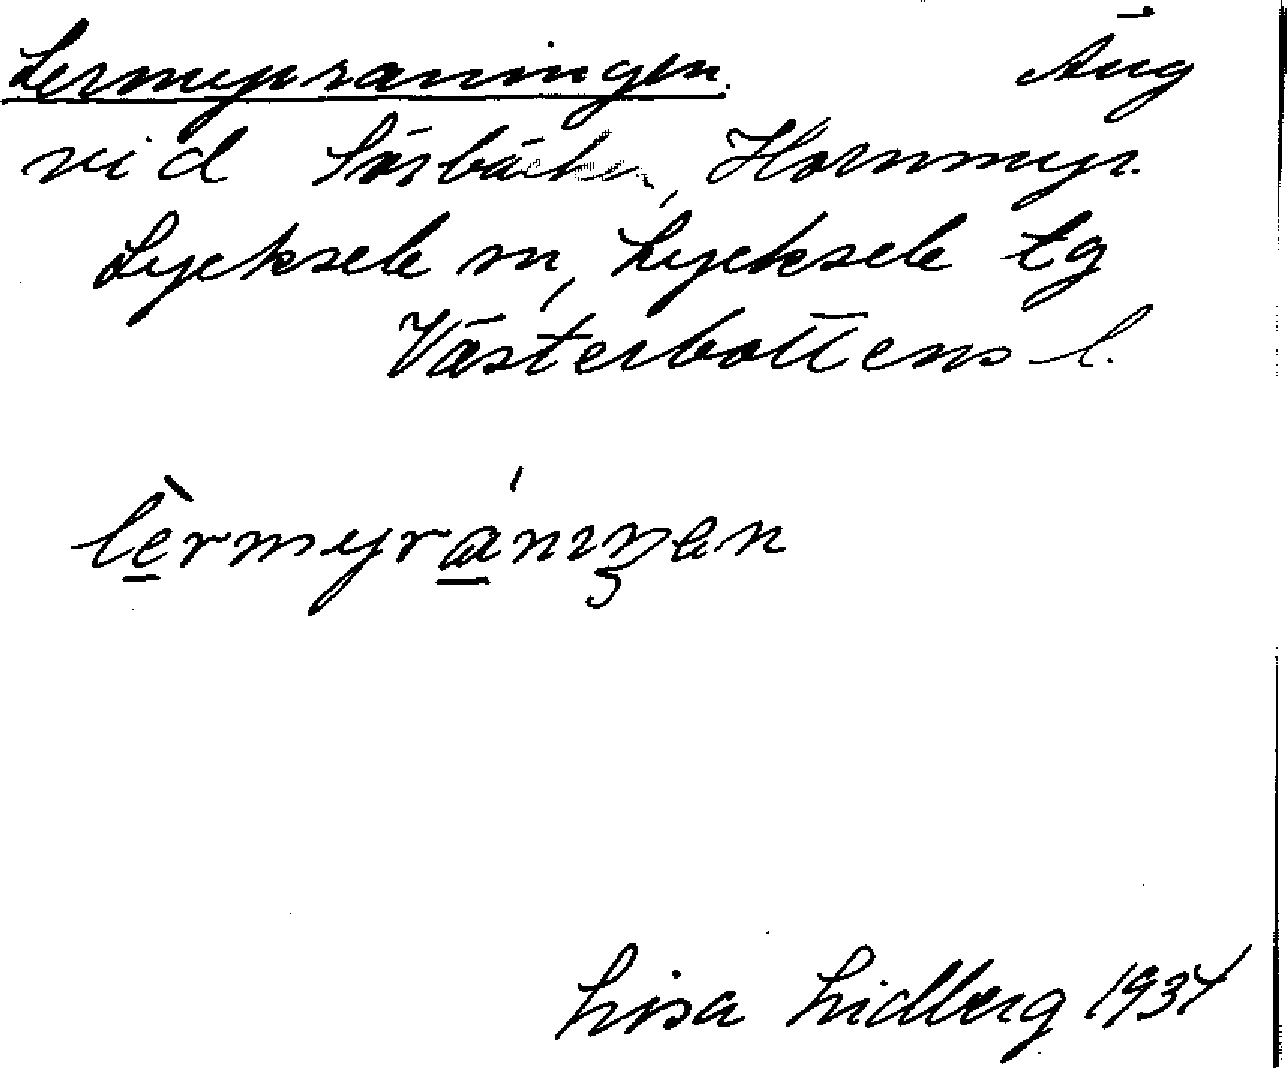 Lermyraningen. Äng
vid Sörbäcken, Hornmyr.
Lycksele sn, Lycksele tg
Västerbottens l.
lèrmyrániŋen
Lisa Lidberg 1937